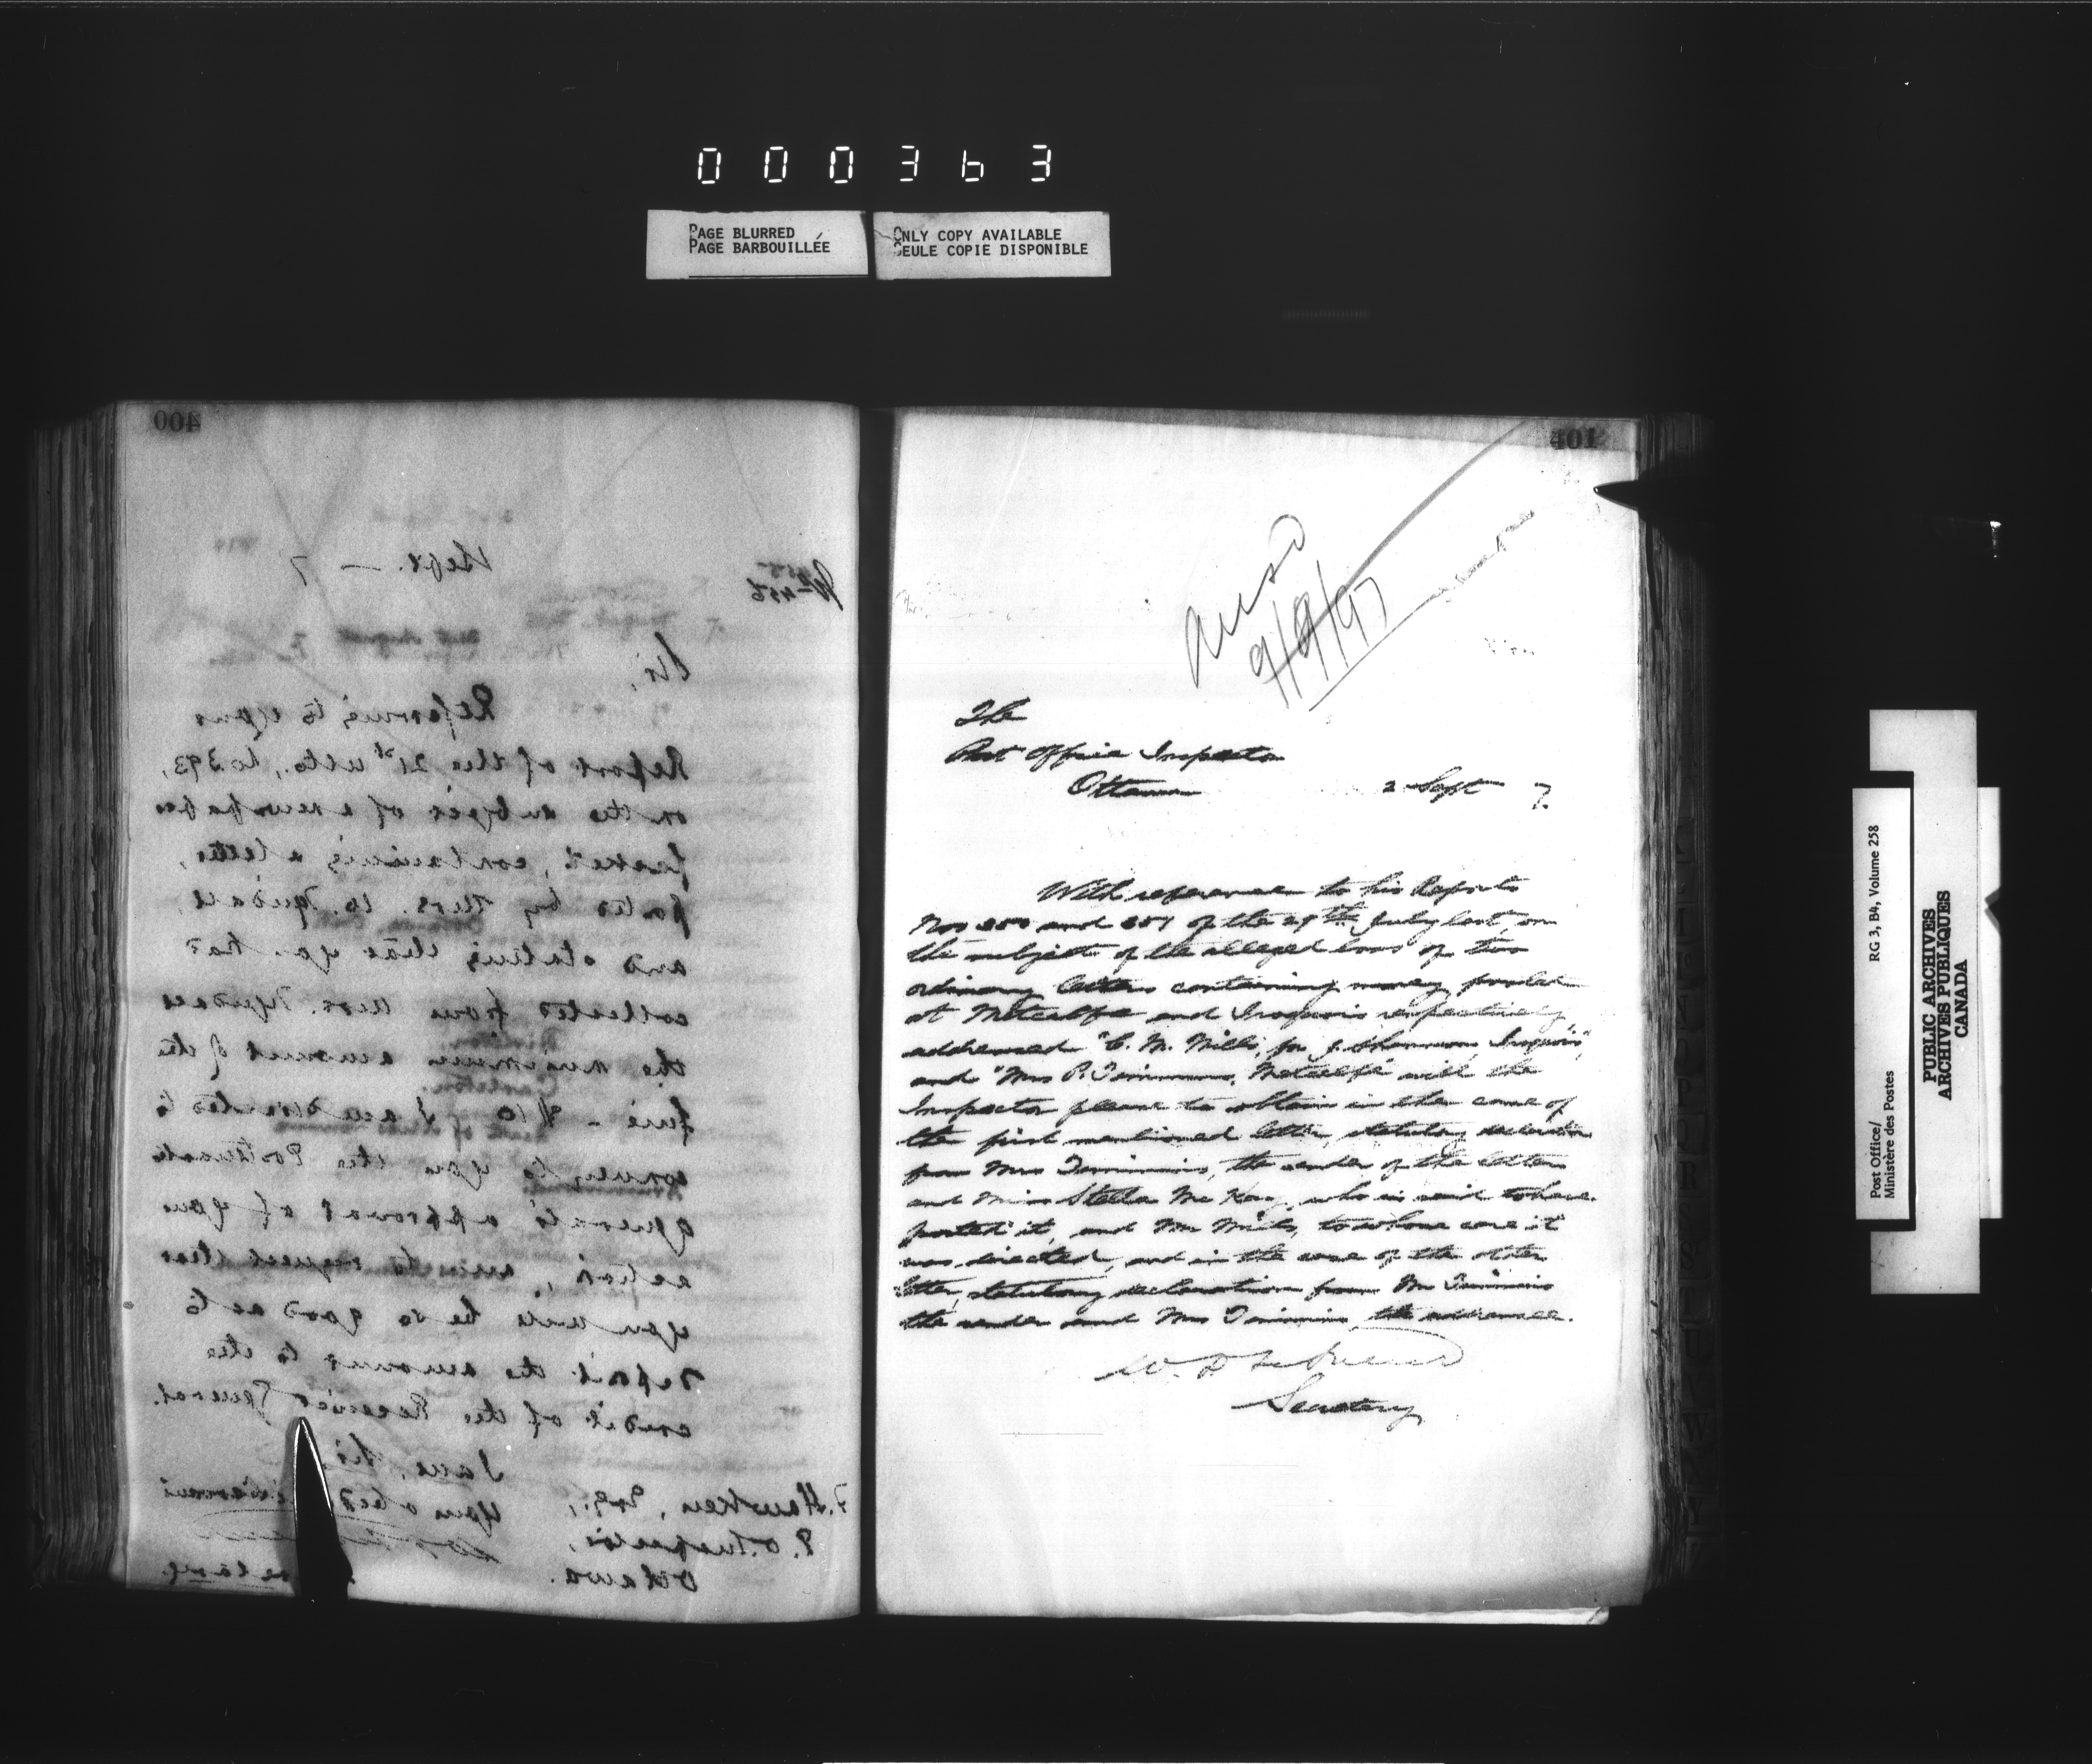 000363
PAGE BLURRED
PAGE BARBOUILLÉE
ONLY COPY AVAILABLE
SEULE COPIE DISPONIBLE
400
Sept. — 7
456
Sir,
Referring to your
Report of the 21st ulto., No 393,
on the subject of a newspaper
packet, containing a letter,
posted by Mrs.
and stating that you had
collected from Mrs.
the minimum amount of the
fine - $10 I am directed to
convey to you the Postmaster
General's approval of your
action, and to request that
you will be so good as to
deposit the amount to the
credit of the Receiver General.
I am, Sir,
Your obed
F. Hawken, Esq.,
P. O. Inspector,
Ottawa.
401
9/9/97
The
Post Office Inspector
Ottawa 2 Sept 7.
With reference to his Reports
Nos 350 and 351 of the 29th July last, on
the subject of the alleged loss of two
ordinary letters containing money posted
at Metcalfe and Iroquois respectively
addressed "C. M. Mills, for J. Iroquois",
and "Mrs P. Timmins, Metcalfe" will the
Inspector please to obtain in the case of
the first mentioned letter, statutory declaration
from Mrs Timmins, the sender of the letter
and Miss Stella McKay, who is said to have
posted it, and Mr Mills, to whose care it
was directed, and in the case of the other
letter, statutory declaration from Mr Timmins
the sender and Mrs Timmins, the addressee.
Secretary
RG 3, B4, Volume 258
Post Office/
Ministère des Postes
PUBLIC ARCHIVES
ARCHIVES PUBLIQUES
CANADA